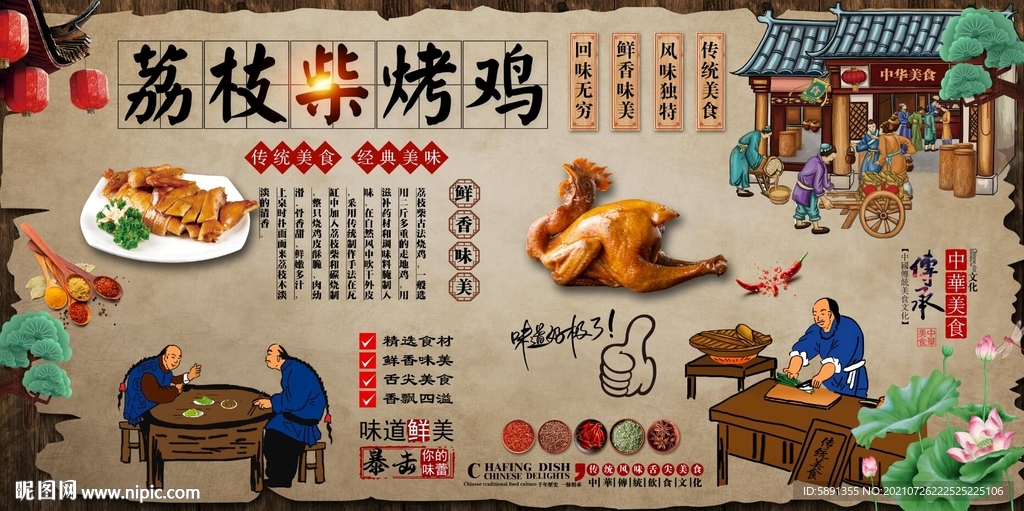 荔枝柴烤鸡
传统美食
风味独特
鲜香味美
回味无穷
中华美食
传统美食 经典美味
鲜香味美
荔枝柴古法烧鸡,一般选
用二斤多重的走地鸡,用
滋补药材和调味料腌制入
味,在自然风中吹干外皮
,采用传统制作手法在瓦
缸中加入荔枝柴和碳烧制
,整只烧鸡皮酥脆,肉幼
滑,骨香甜,鲜嫩多汁,
上桌时扑面而来荔枝木淡
淡的清香.
味道好极了!
中華美食
文化
傳承
【中國傳統美食文化】
中華美食
精选食材
鲜香味美
舌尖美食
香飘四溢
味道鲜美
暴击你的味蕾
CHAFING DISH
CHINESE DELIGHTS
Chinese traditional food culture 千年歷史 一脉相承
传统风味舌尖美食
中華傳統飲食文化
传统美食
昵图网 www.nipic.com
ID:5891355 NO:20210726222525225106